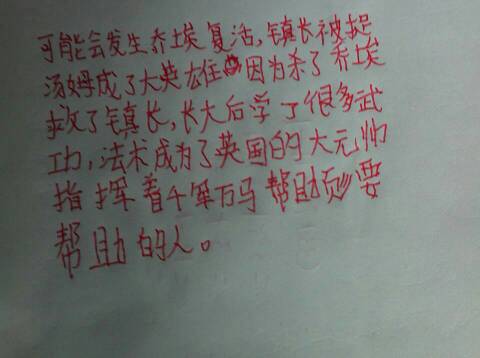 可能会发生乔埃复活,镇长被捉
汤姆成了大英雄因为杀了乔埃
救了镇长,长大后学了很多武
功,法术成为了英国的大元帅
指挥着千军万马帮助需要
帮助的人。